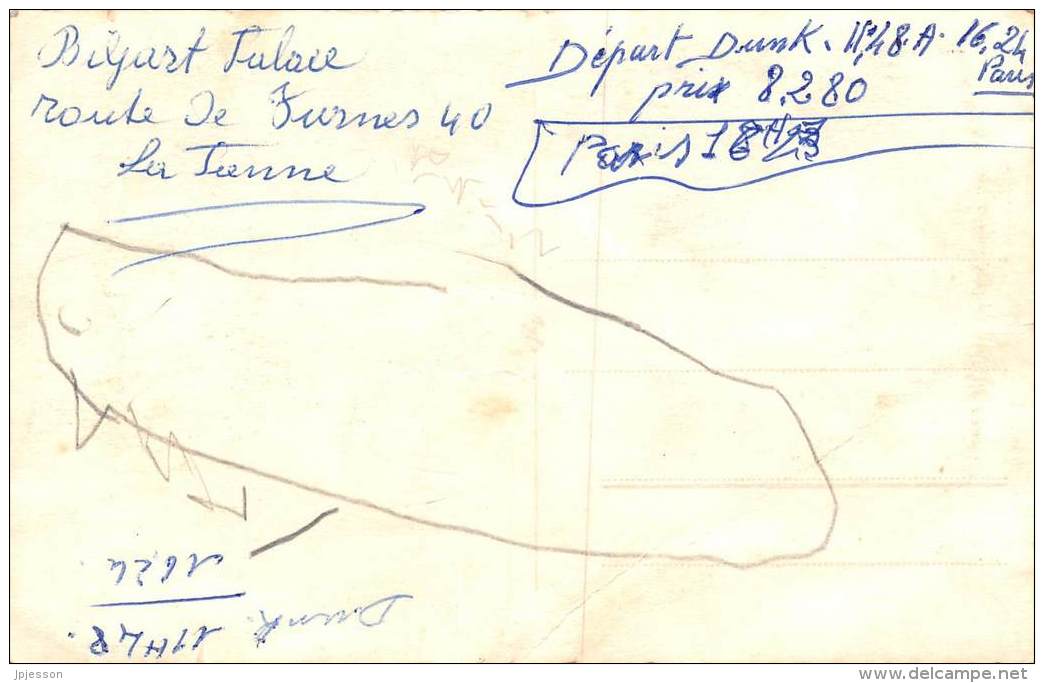 Bilyart Palace
route De Furnes 40
La Panne
Départ Dunk. 11,48. A. 16,24
Paris
prix 8.280
Paris 18H
1624
11H48.
Dunk.
jpjesson
© delcampe.net